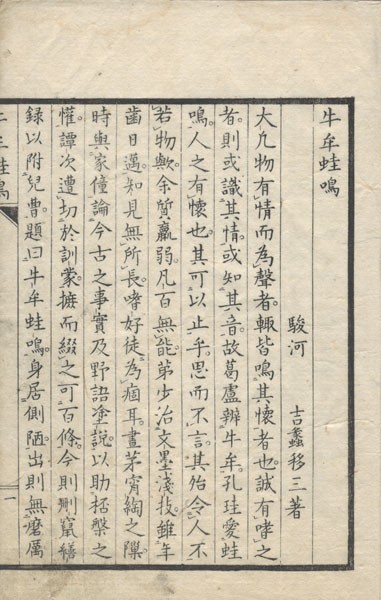 牛牟蛙鳴
駿河 吉蠡移三著
大凡物有情而為聲者輙皆鳴其懷者也誠有哮之
者則或識其情或知其音故葛盧辨牛牟孔珪愛蛙
鳴人之有懷也其可以止乎思而不言其殆令人不
若物歟余質羸弱凡百無能第少治文墨淺技雖年
齒日邁知見無所長嗜好徒為痼耳晝茅宵綯之隟
時與家僮論今古之事實及野語塗說以助栝槃之
懽譚次遭切於訓蒙摭而綴之可百條今則刪竄繕
録以附兒曹題曰牛牟蛙鳴身居側陋出則無磨厲
牛牟蛙鳴
一